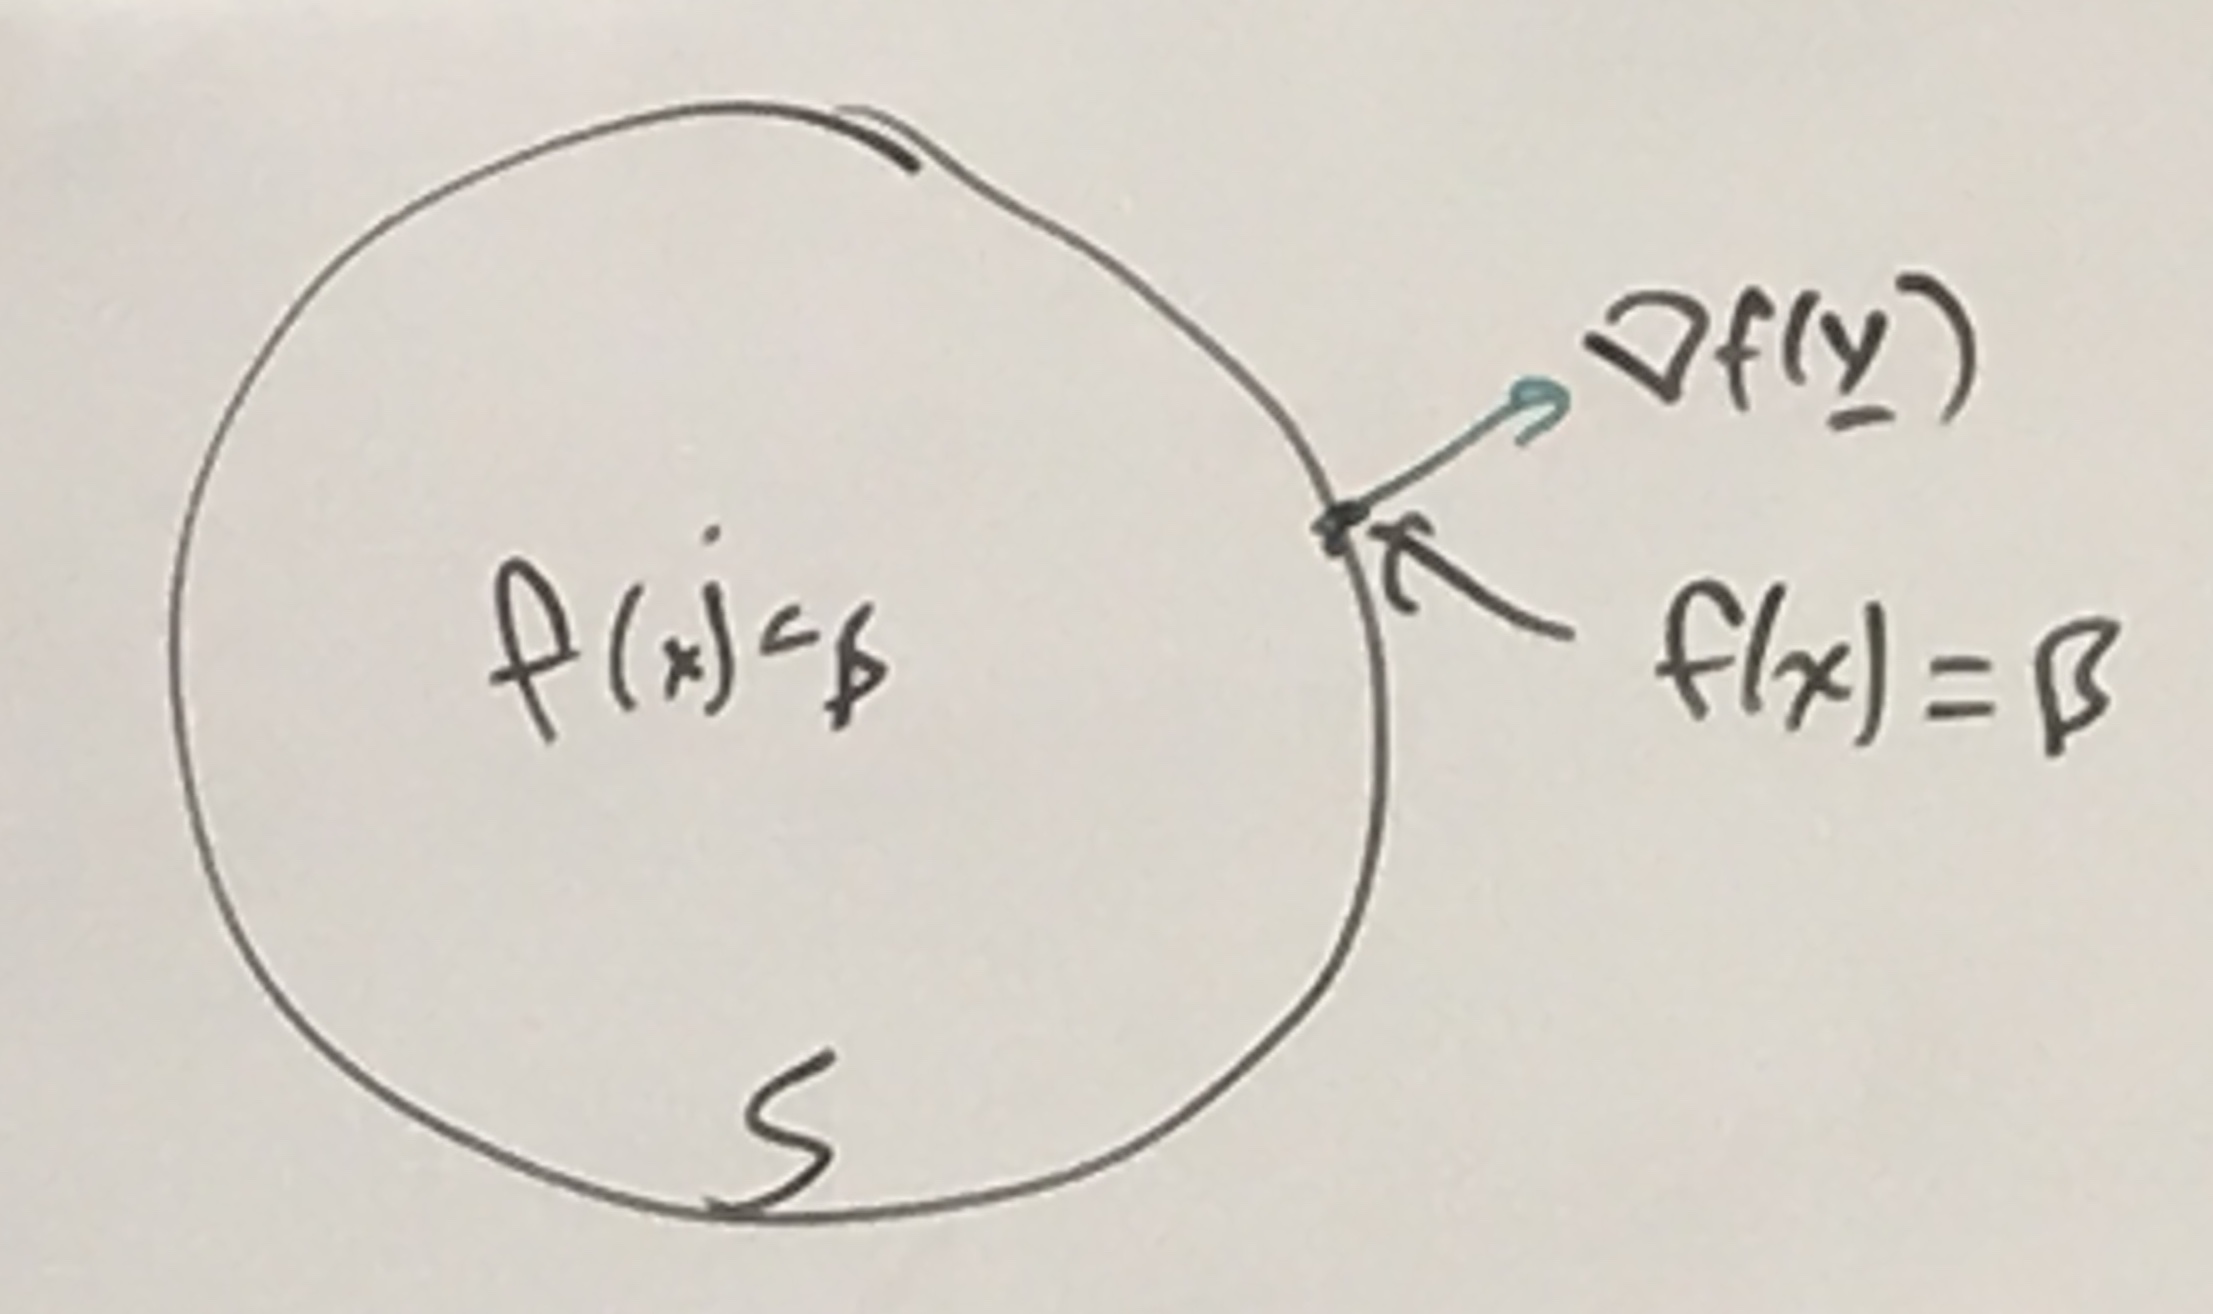 ∇f(y)
f(x)<β
f(x)=β
S